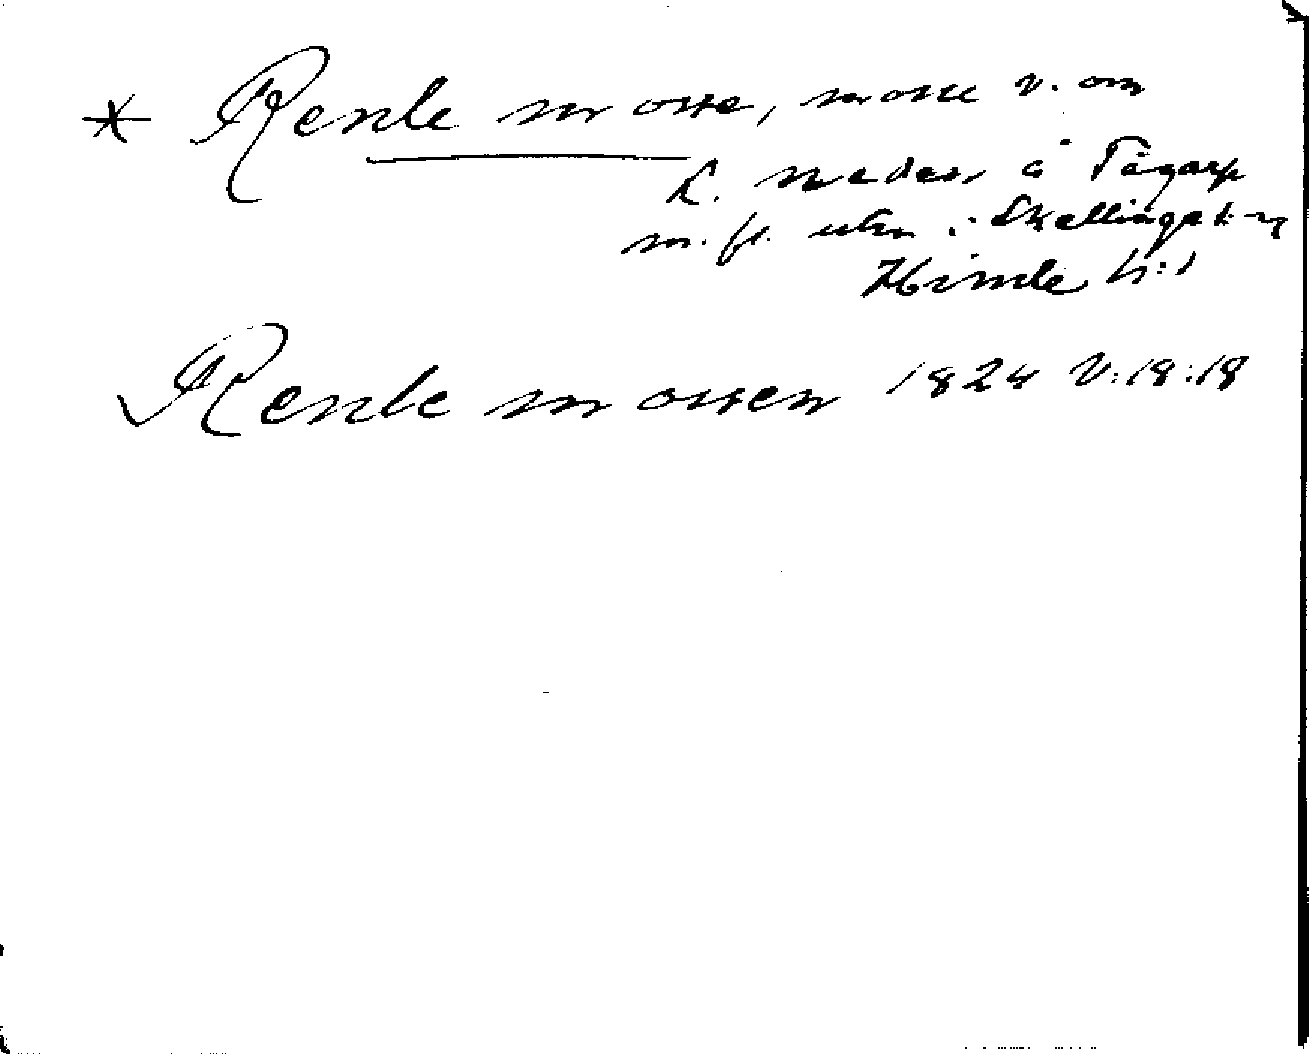 * Renle mosse, mosse v. om
L. maden å Tågarp
m. fl. utm. i Skällinge s-n
Himle h:d
Renle mossen 1824 V:18:18